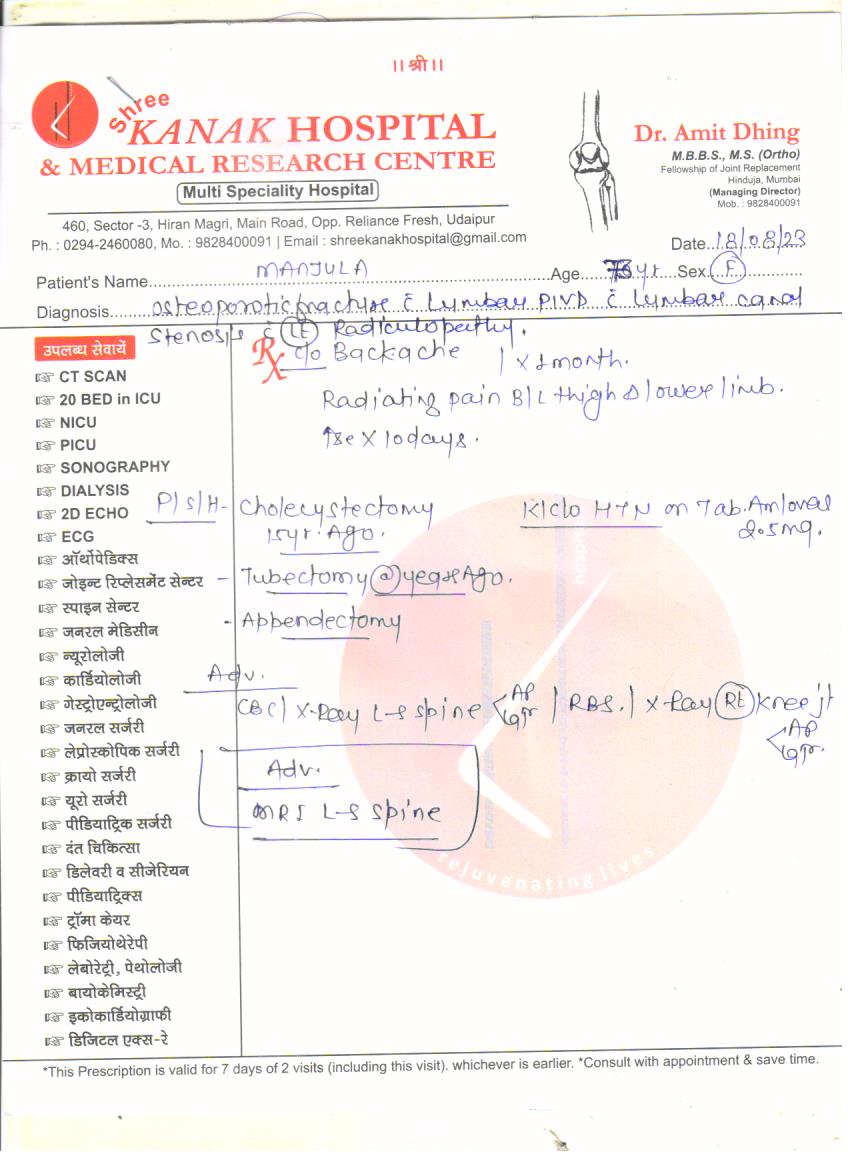 ।। श्री ।।
Shree
KANAK HOSPITAL
& MEDICAL RESEARCH CENTRE
Multi Speciality Hospital
460, Sector -3, Hiran Magri, Main Road, Opp. Reliance Fresh, Udaipur
Ph. : 0294-2460080, Mo. : 9828400091 | Email : shreekanakhospital@gmail.com
Dr. Amit Dhing
M.B.B.S., M.S. (Ortho)
Fellowship of Joint Replacement
Hinduja, Mumbai
(Managing Director)
Mob. : 9828400091
Date..18/08/23
Patient's Name..... MANJULA .....Age.... yr Sex. F
Diagnosis..... Osteoporotic fracture c̄ Lumbar PIVD c̄ Lumbar canal
Stenosis c̄ LE Radiculopathy.
Rx c/o Backache | x 1 month.
Radiating pain B/L thigh & lower limb.
↑se x 10 days.
P/S/H- Cholecystectomy
15yr. Ago.
K/c/o HTN on Tab. Amloval
2.5mg.
- Tubectomy @ years Ago.
- Appendectomy
Adv.
CBC | X-Ray L-S spine < AP | RBS. | X-Ray RE knee jt
< AP
Adv.
MRI L-S spine
उपलब्ध सेवायें
☞ CT SCAN
☞ 20 BED in ICU
☞ NICU
☞ PICU
☞ SONOGRAPHY
☞ DIALYSIS
☞ 2D ECHO
☞ ECG
☞ ऑर्थोपेडिक्स
☞ जोइन्ट रिप्लेसमेंट सेन्टर
☞ स्पाइन सेन्टर
☞ जनरल मेडिसीन
☞ न्यूरोलोजी
☞ कार्डियोलोजी
☞ गेस्ट्रोएन्ट्रोलोजी
☞ जनरल सर्जरी
☞ लेप्रोस्कोपिक सर्जरी
☞ क्रायो सर्जरी
☞ यूरो सर्जरी
☞ पीडियाट्रिक सर्जरी
☞ दंत चिकित्सा
☞ डिलेवरी व सीजेरियन
☞ पीडियाट्रिक्स
☞ ट्रॉमा केयर
☞ फिजियोथेरेपी
☞ लेबोरेट्री, पेथोलोजी
☞ बायोकेमिस्ट्री
☞ इकोकार्डियोग्राफी
☞ डिजिटल एक्स-रे
hospital
rejuvenating lives
*This Prescription is valid for 7 days of 2 visits (including this visit). whichever is earlier. *Consult with appointment & save time.